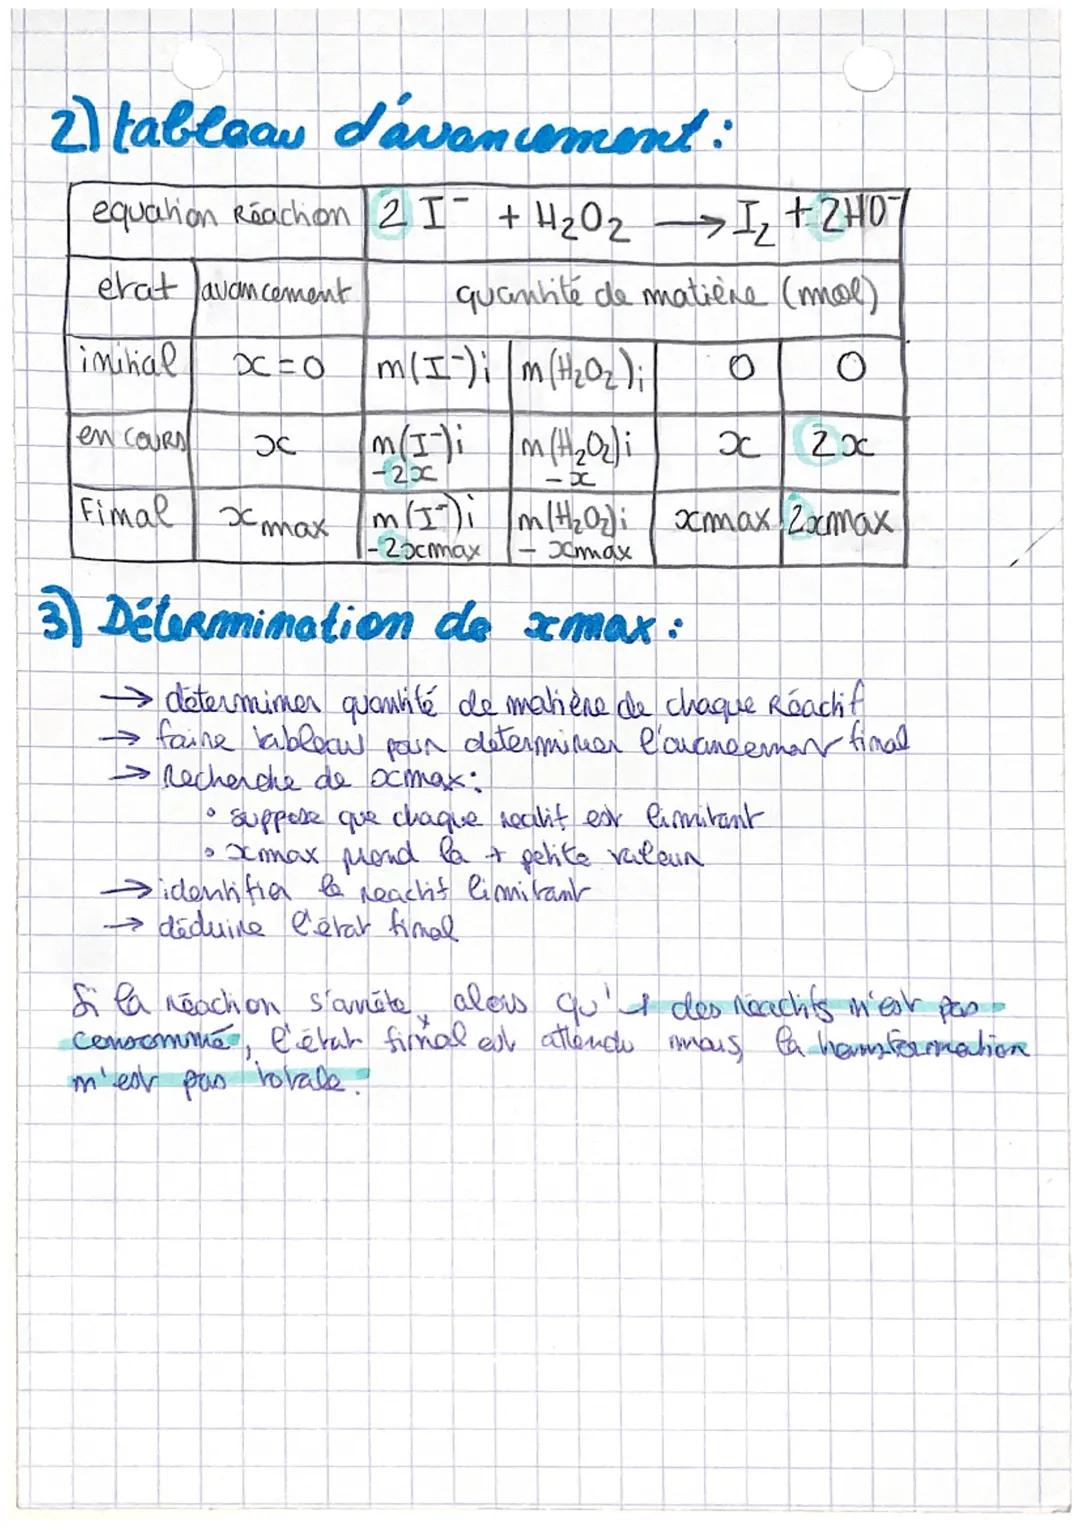 2) tableau d'avancement :
equation Réaction 2 I⁻ + H₂O₂ → I₂ + 2HO⁻
etat avancement quantité de matière (mol)
initial x = 0 n(I⁻)i n(H₂O₂)i 0 0
en cours x n(I⁻)i - 2x n(H₂O₂)i - x x 2x
Final xmax n(I⁻)i - 2xmax n(H₂O₂)i - xmax xmax 2xmax
3) Détermination de xmax :
→ déterminer quantité de matière de chaque Réactif
→ faire tableau pour determiner l'avancement final
→ Recherche de xmax :
• suppose que chaque reactif est limitant
• xmax prend la + petite valeur
→ identifier le reactif limitant
→ déduire l'état final
Si la réaction s'arrête, alors qu'1 des réactifs n'est pas
consommé, l'état final est attendu mais la transformation
n'est pas totale.